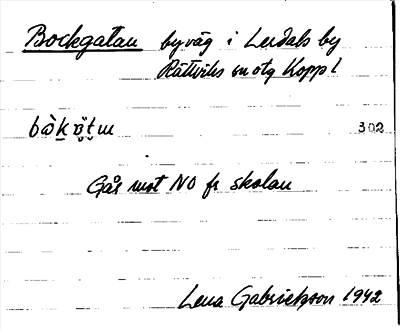 Bockgatan byväg i Lerdals by
Rättviks sn otg Kopp l
302
Går mot NO fr skolan
Lena Gabrielsson 1942